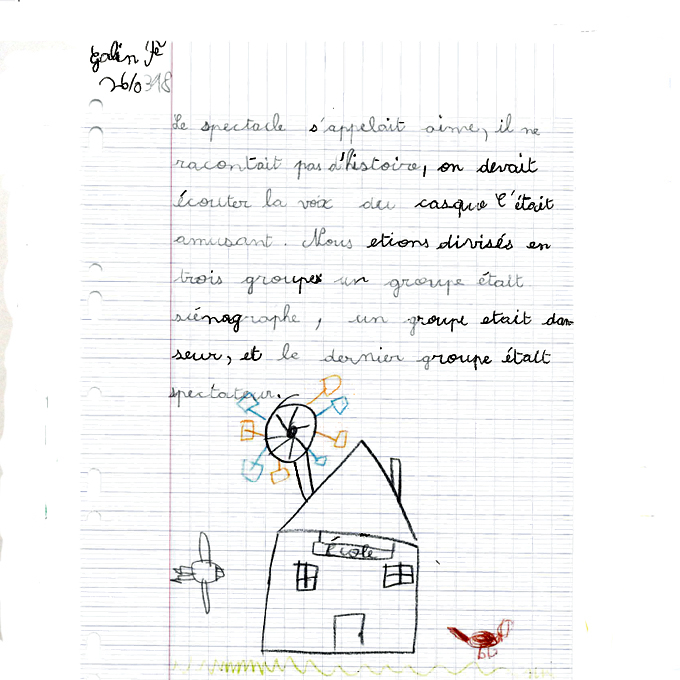 Le spectacle s'appelait aime, il ne
racontait pas d'histoire, on devait
écouter la voix du casque C'était
amusant. Nous etions divisés en
trois groupes un groupe était
scénographe, un groupe etait dan-
seur, et le dernier groupe était
spectateur.
école